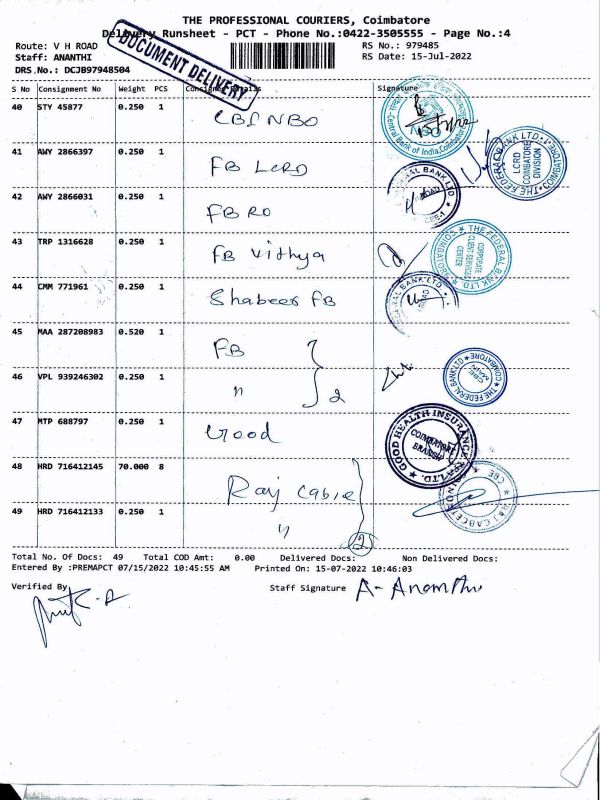 THE PROFESSIONAL COURIERS, Coimbatore
Delivery Runsheet - PCT - Phone No.:0422-3505555 - Page No.:4
Route: V H ROAD RS No.: 979485
Staff: ANANTHI RS Date: 15-Jul-2022
DRS.No.: DCJB97948504
DOCUMENT DELIVERY
S No Consignment No Weight PCS Consignee Details Signature
40 STY 45877 0.250 1 CBI NBO
Central Bank of India, Coimbatore
NBO
41 AWY 2866397 0.250 1 FB LCRD
THE FEDERAL BANK LTD. COIMBATORE
LCRD
COIMBATORE
DIVISION
42 AWY 2866031 0.250 1 FB RO
43 TRP 1316628 0.250 1 FB Vithya
THE FEDERAL BANK LTD. COIMBATORE
CORPORATE
CLIENT SERVICES
CENTER
44 CMM 771961 0.250 1 Shabeer FB
45 MAA 287208983 0.520 1 FB
46 VPL 939246302 0.250 1 " 2
THE FEDERAL BANK LTD COIMBATORE
CBE
MAIN
47 MTP 688797 0.250 1 Good
GOOD HEALTH INSURANCE TPA LTD.
COIMBATORE
BRANCH
48 HRD 716412145 70.000 8 Raj Cable
49 HRD 716412133 0.250 1 " 2
Total No. Of Docs: 49 Total COD Amt: 0.00 Delivered Docs: Non Delivered Docs:
Entered By :PREMAPCT 07/15/2022 10:45:55 AM Printed On: 15-07-2022 10:46:03
Verified By Staff Signature A- Ananthi